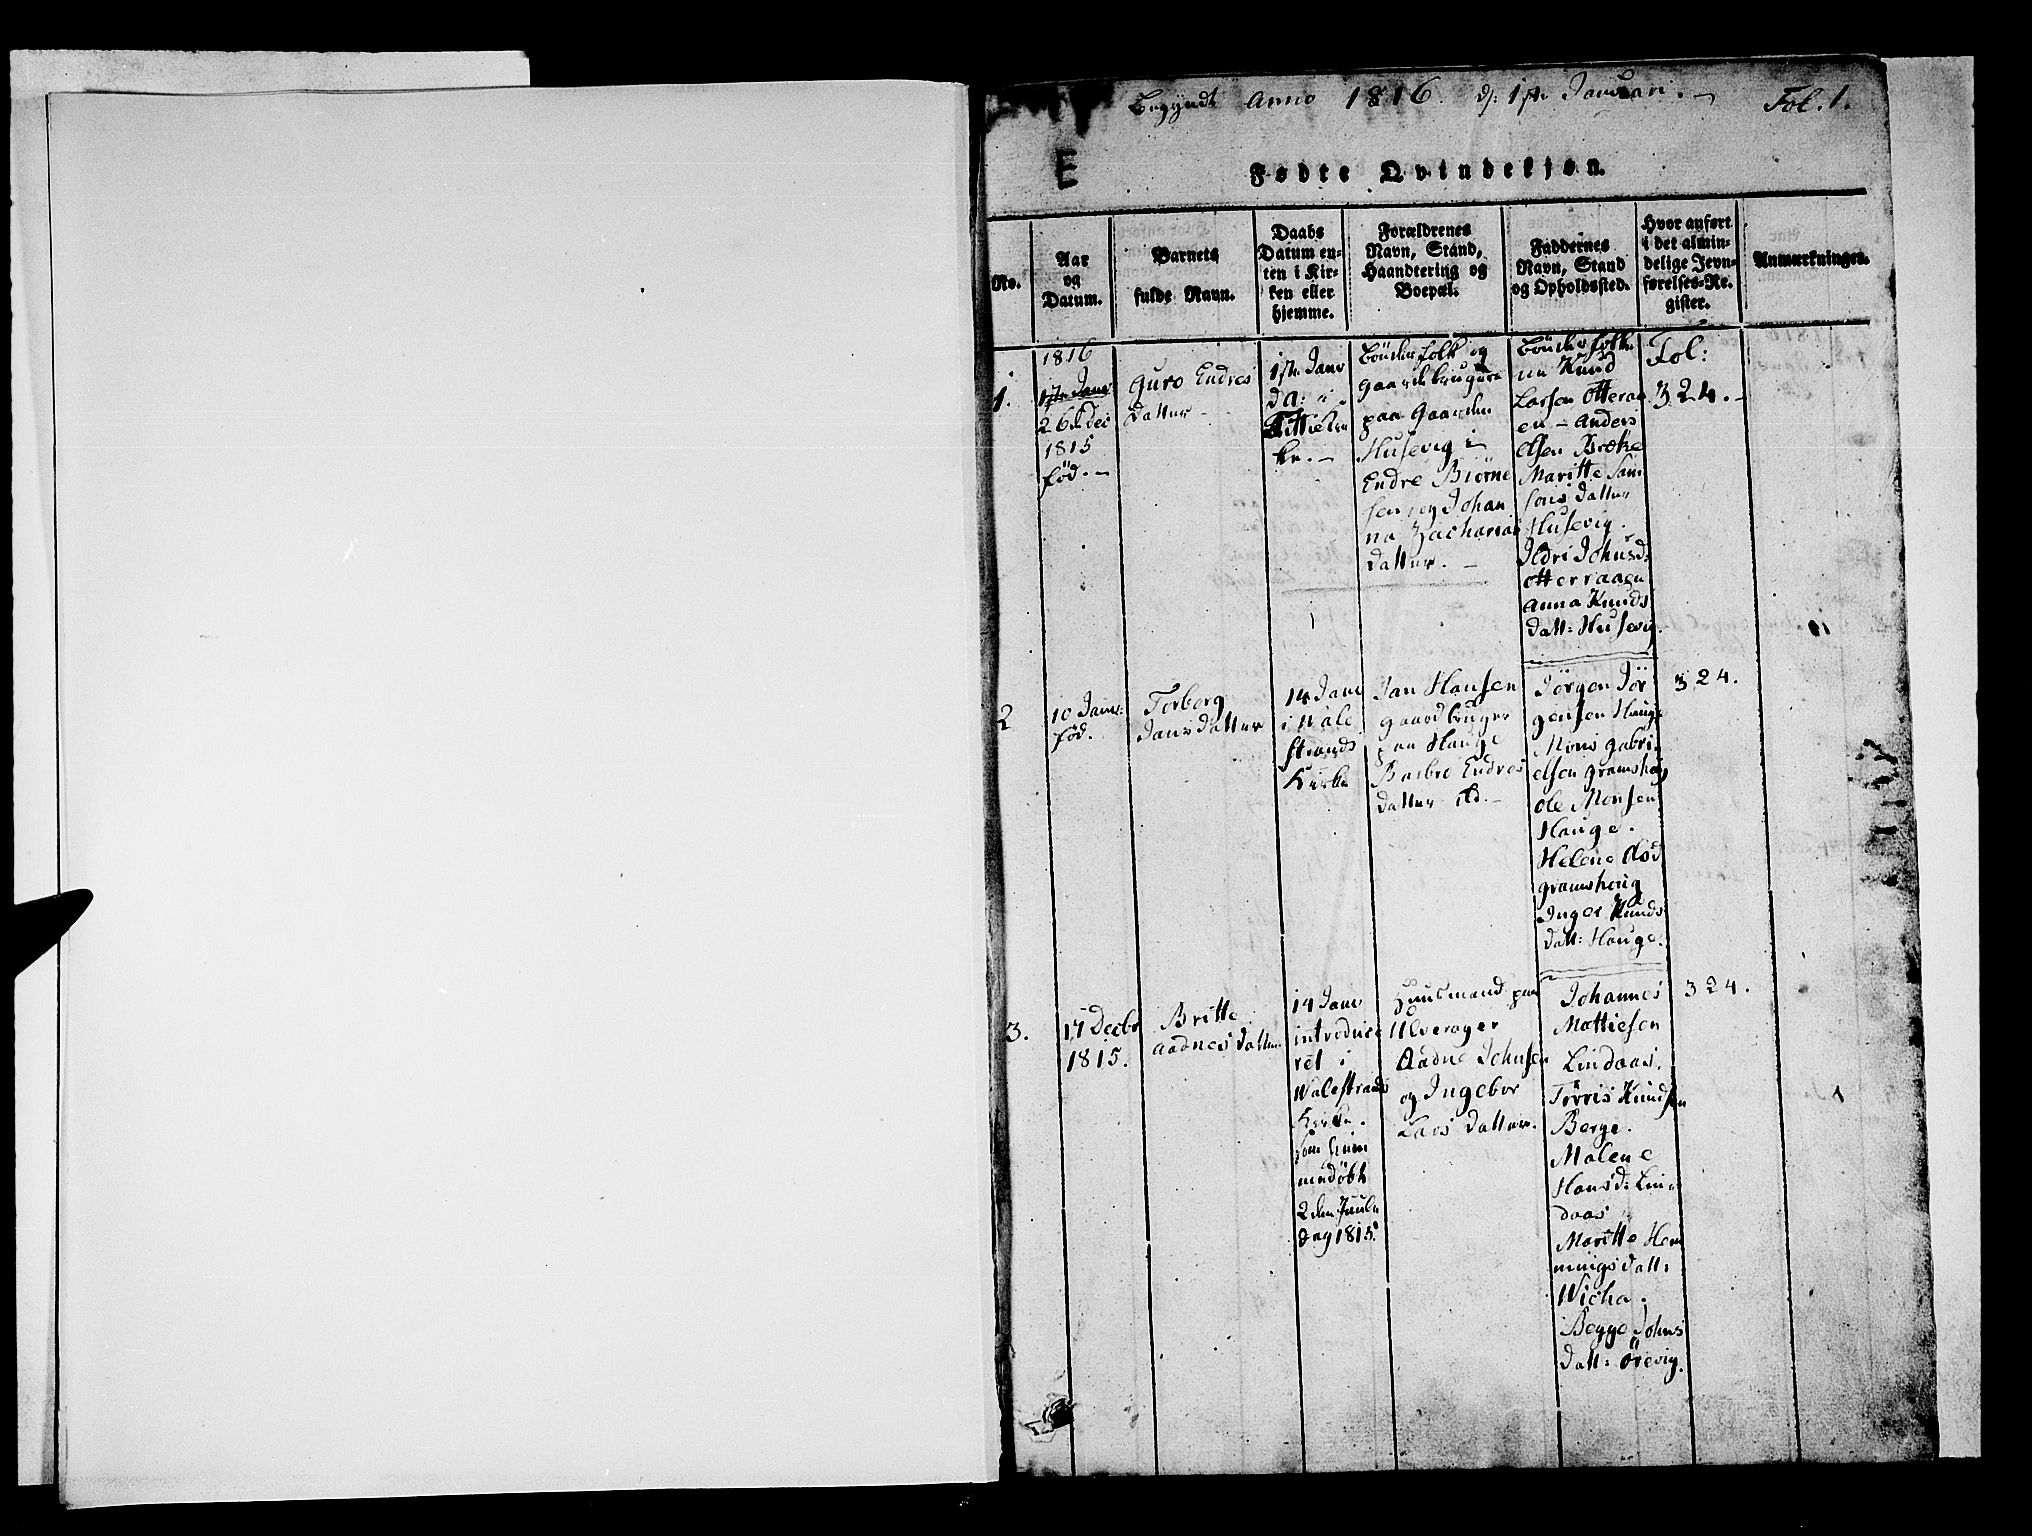 Begyndt Anno 1816. d: 1ste Januari.
Fol. 1.
E
Fødte Qvindekjøn.
No.
Aar
og
Datum.
Barnets
fulde Navn.
Daabs
Datum en-
ten i Kir-
ken eller
hjemme.
Forældrenes
Navn, Stand,
Haandtering og
Boepæl.
Faddernes
Navn, Stand
og Opholdssted.
Hvor anført
i det almin-
delige Jevn-
førelses-Re-
gister.
Anmærkninger.
1.
1816
1ste Janu
26 Dec
1815
fød.
Guro Endres
datter
1ste Janv
da: i
kn.
Bønder folk og
Gaardbrugere
paa Gaarden
Husevig
Endre Biørne
sen og Johan
na Zacharias
datter.
Bønder folke
ne Knud
Larsen Otteraa
en - Anders
Elsen Brække
Maritte Sam
sons datter
Husevig.
Ildri Johnsd:
otterraaen
Anna Knuds
datt: Husevig.
Fol:
324.
2
10 Janv:
fød.
Torborg
Jans datter
14 Janv
i Wale
strands
Kirke
Jan Hansen
gaardbruger
paa Hauge
Barbro Endres
datter ibd.
Jørgen Jør
gensen Hauge
Mons gabri
elsen gramshoug
Ole Monsen
Hauge.
Helene Olsd
gramshoug
Inger Knuds
datt: Hauge.
324.
3.
17 Decbr
1815.
Britte
Aadnes datter
14 Janv
introduce
ret i
Walestrands
Kirke.
som hjem
medøbt
2den Juule
dag 1815.
Huusmand paa
Ulverager
Aadne Johnsen
og Ingebor
Lars datter.
Johannes
Mattiesen
Lindaas.
Tørris Knudsen
Berge.
Malene
Hansd: Lin-
daas
Maritte Hem
mings datt:
Wicha.
Begge Johns
datt:Ørevig.
324.